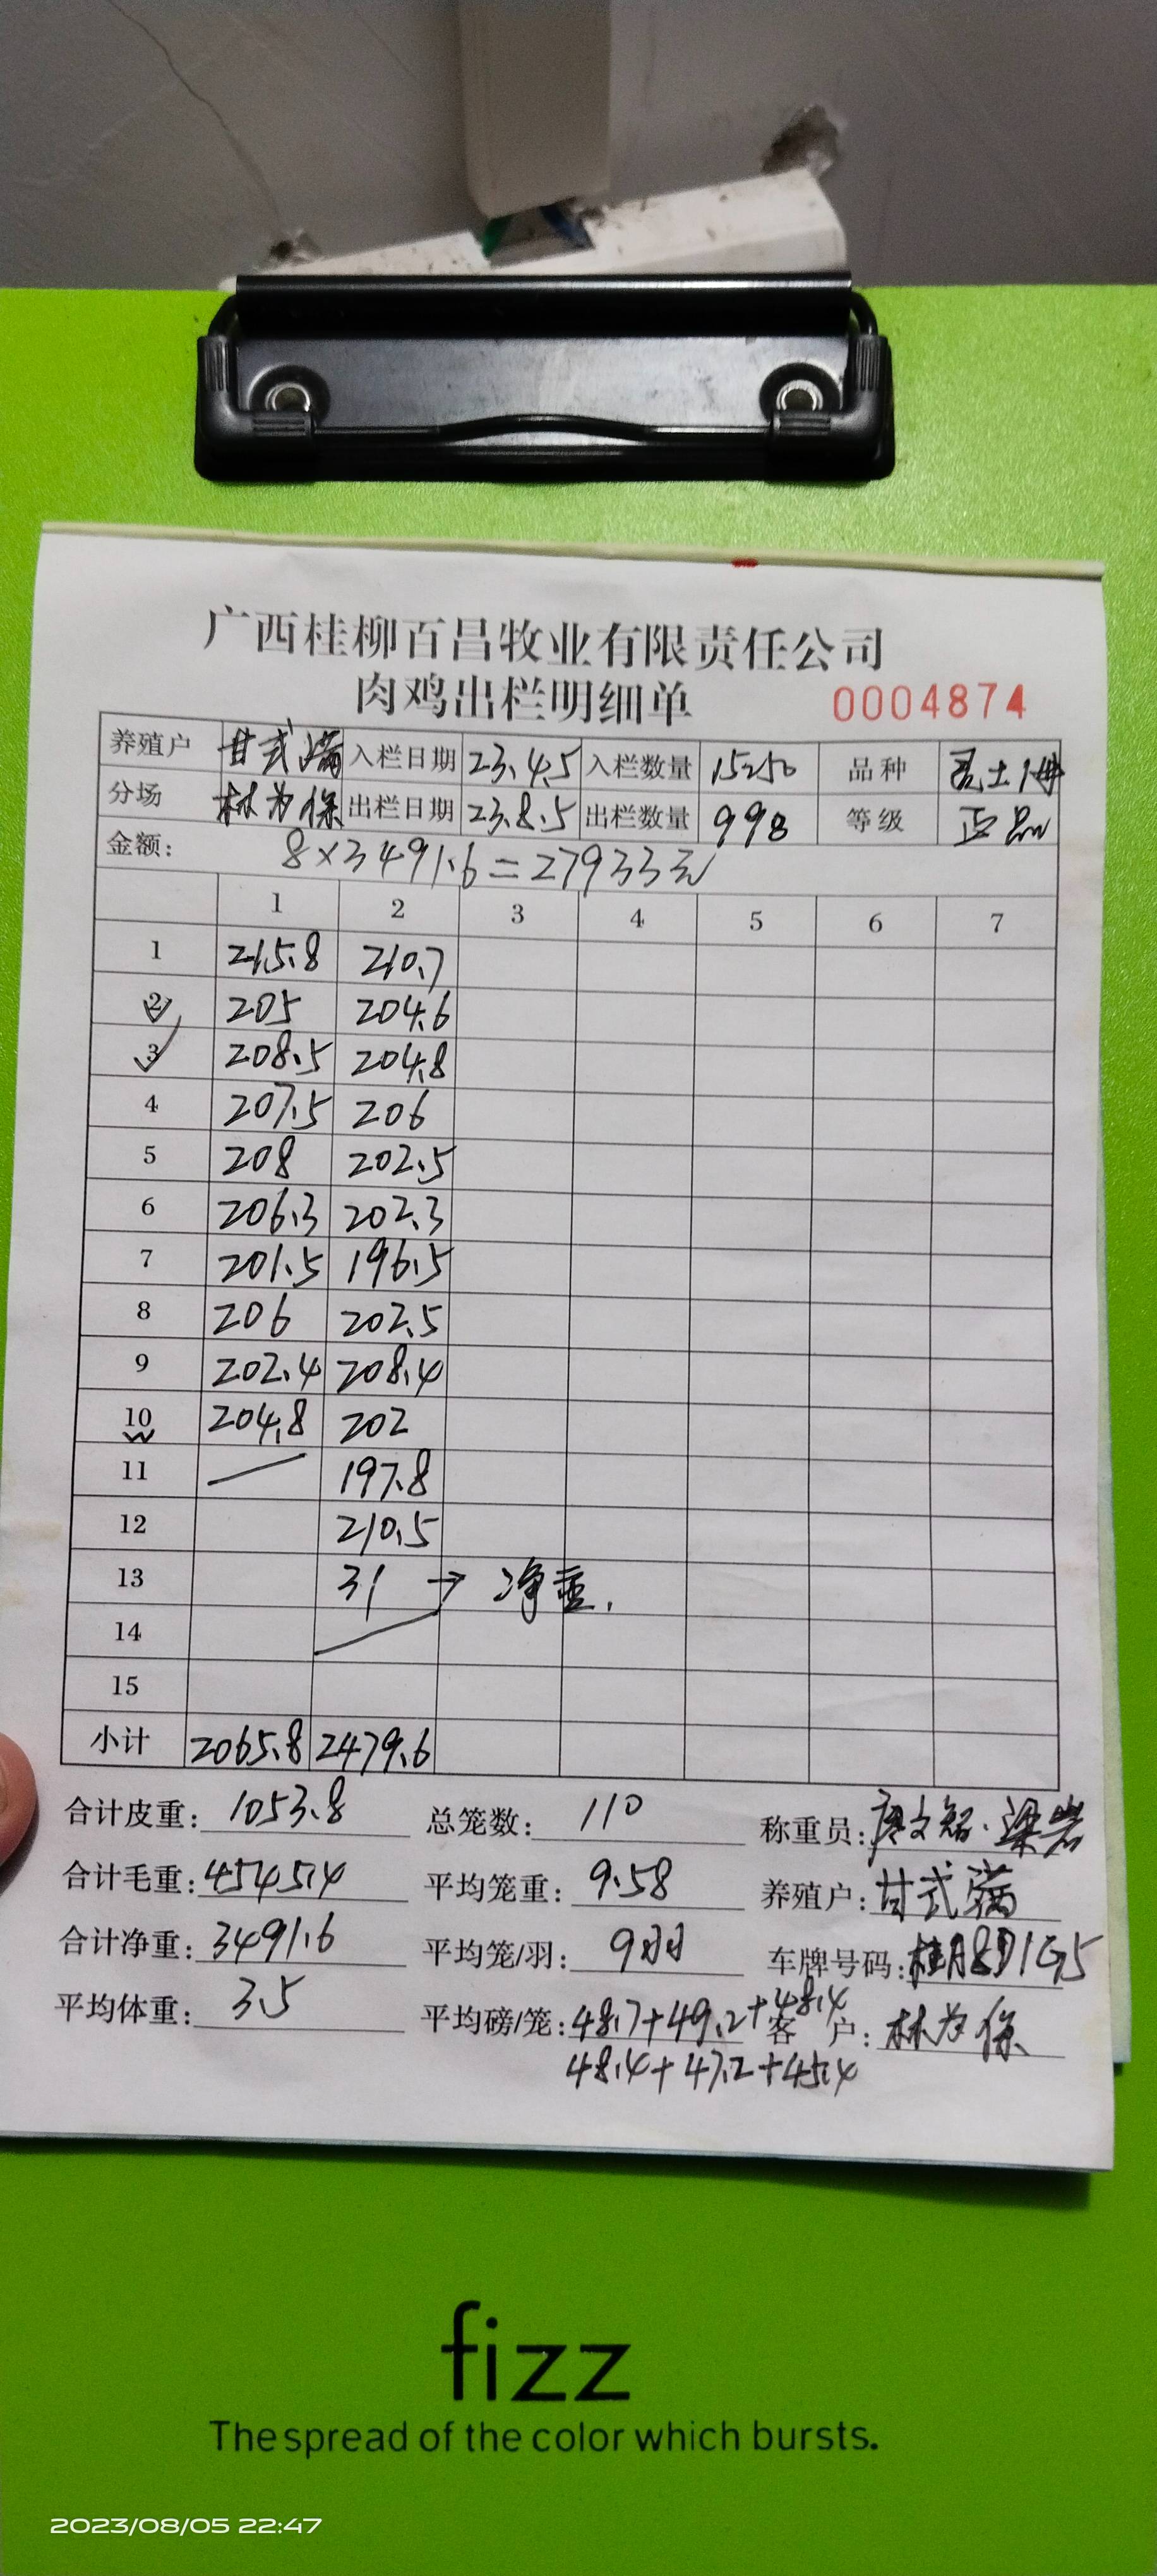 广西桂柳百昌牧业有限责任公司
肉鸡出栏明细单 0004874
养殖户 甘式满 入栏日期 23.4.5 入栏数量 15250 品种 土1母
分场 林为保 出栏日期 23.8.5 出栏数量 998 等级 正品
金额: 8×3491.6=27933元
1 2 3 4 5 6 7
1 215.8 210.7
2 205 204.6
3 208.5 204.8
4 207.5 206
5 208 202.5
6 206.3 202.3
7 201.5 196.5
8 206 202.5
9 202.4 208.4
10 204.8 202
11 197.8
12 210.5
13 31 → 净重.
14
15
小计 2065.8 2479.6
合计皮重: 1053.8 总笼数: 110 称重员: 唐文智.梁岩
合计毛重: 4545.4 平均笼重: 9.58 养殖户: 甘式满
合计净重: 3491.6 平均笼/羽: 9羽 车牌号码: 桂A8D1G5
平均体重: 3.5 平均磅/笼: 48.7+49.2+48.4 客户: 林为保
48.4+47.2+45.4
fizz
The spread of the color which bursts.
2023/08/05 22:47